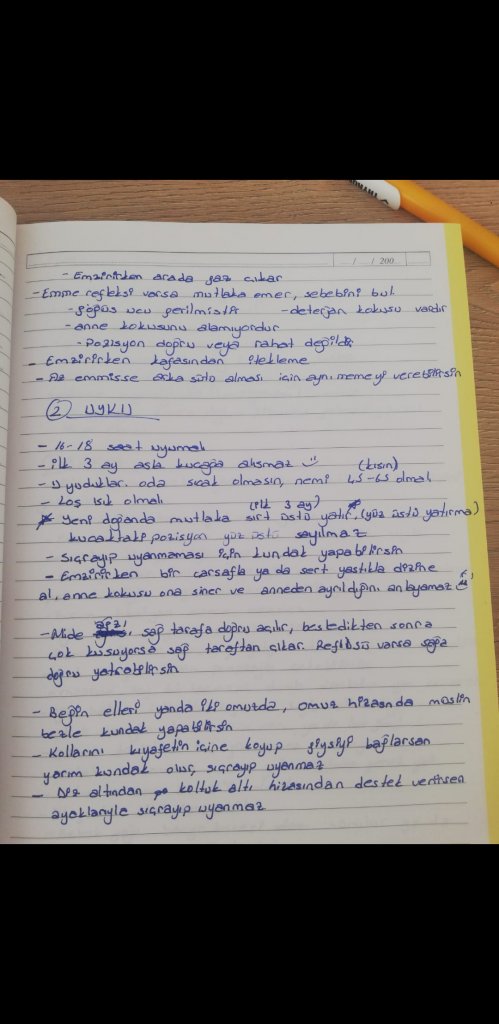 / / 200
- Emzirirken arada gaz çıkar
- Emme refleksi varsa mutlaka emer, sebebini bul.
- göğüs ucu gerilmiştir - deterjan kokusu vardır
- anne kokusunu alamıyordur
- Pozisyon doğru veya rahat değildir
- Emzirirken kafasından itekleme
- Az emmişse arka sütü alması için aynı memeyi verebilirsin
② UYKU
- 16-18 saat uyumalı
- ilk 3 ay asla kucağa alışmaz
- Uyudukları oda sıcak olmasın, nemi (kışın) 45-65 olmalı
- Loş ışık olmalı
* Yeni doğanda mutlaka (ilk 3 ay) sırt üstü yatır. (yüz üstü yatırma)
kucaktaki pozisyon yüz üstü sayılmaz
- Sıçrayıp uyanmaması için kundak yapabilirsin
- Emzirirken bir çarşafla ya da sert yastıkla dizine
al, anne kokusu ona siner ve anneden ayrıldığını anlayamaz
- Mide ağzı, sağ tarafa doğru açılır, beslendikten sonra
çok kusuyorsa sağ taraftan çıkar. Reflüsü varsa sağa
doğru yatırabilirsin
- Beğin elleri yanda iki omuzda, omuz hizasında müslin
bezle kundak yapabilirsin
- Kollarını kıyafetin içine koyup giysiyi bağlarsan
yarım kundak olur, sıçrayıp uyanmaz
- Diz altından koltuk altı hizasından destek verirsen
ayaklarıyla sıçrayıp uyanmaz